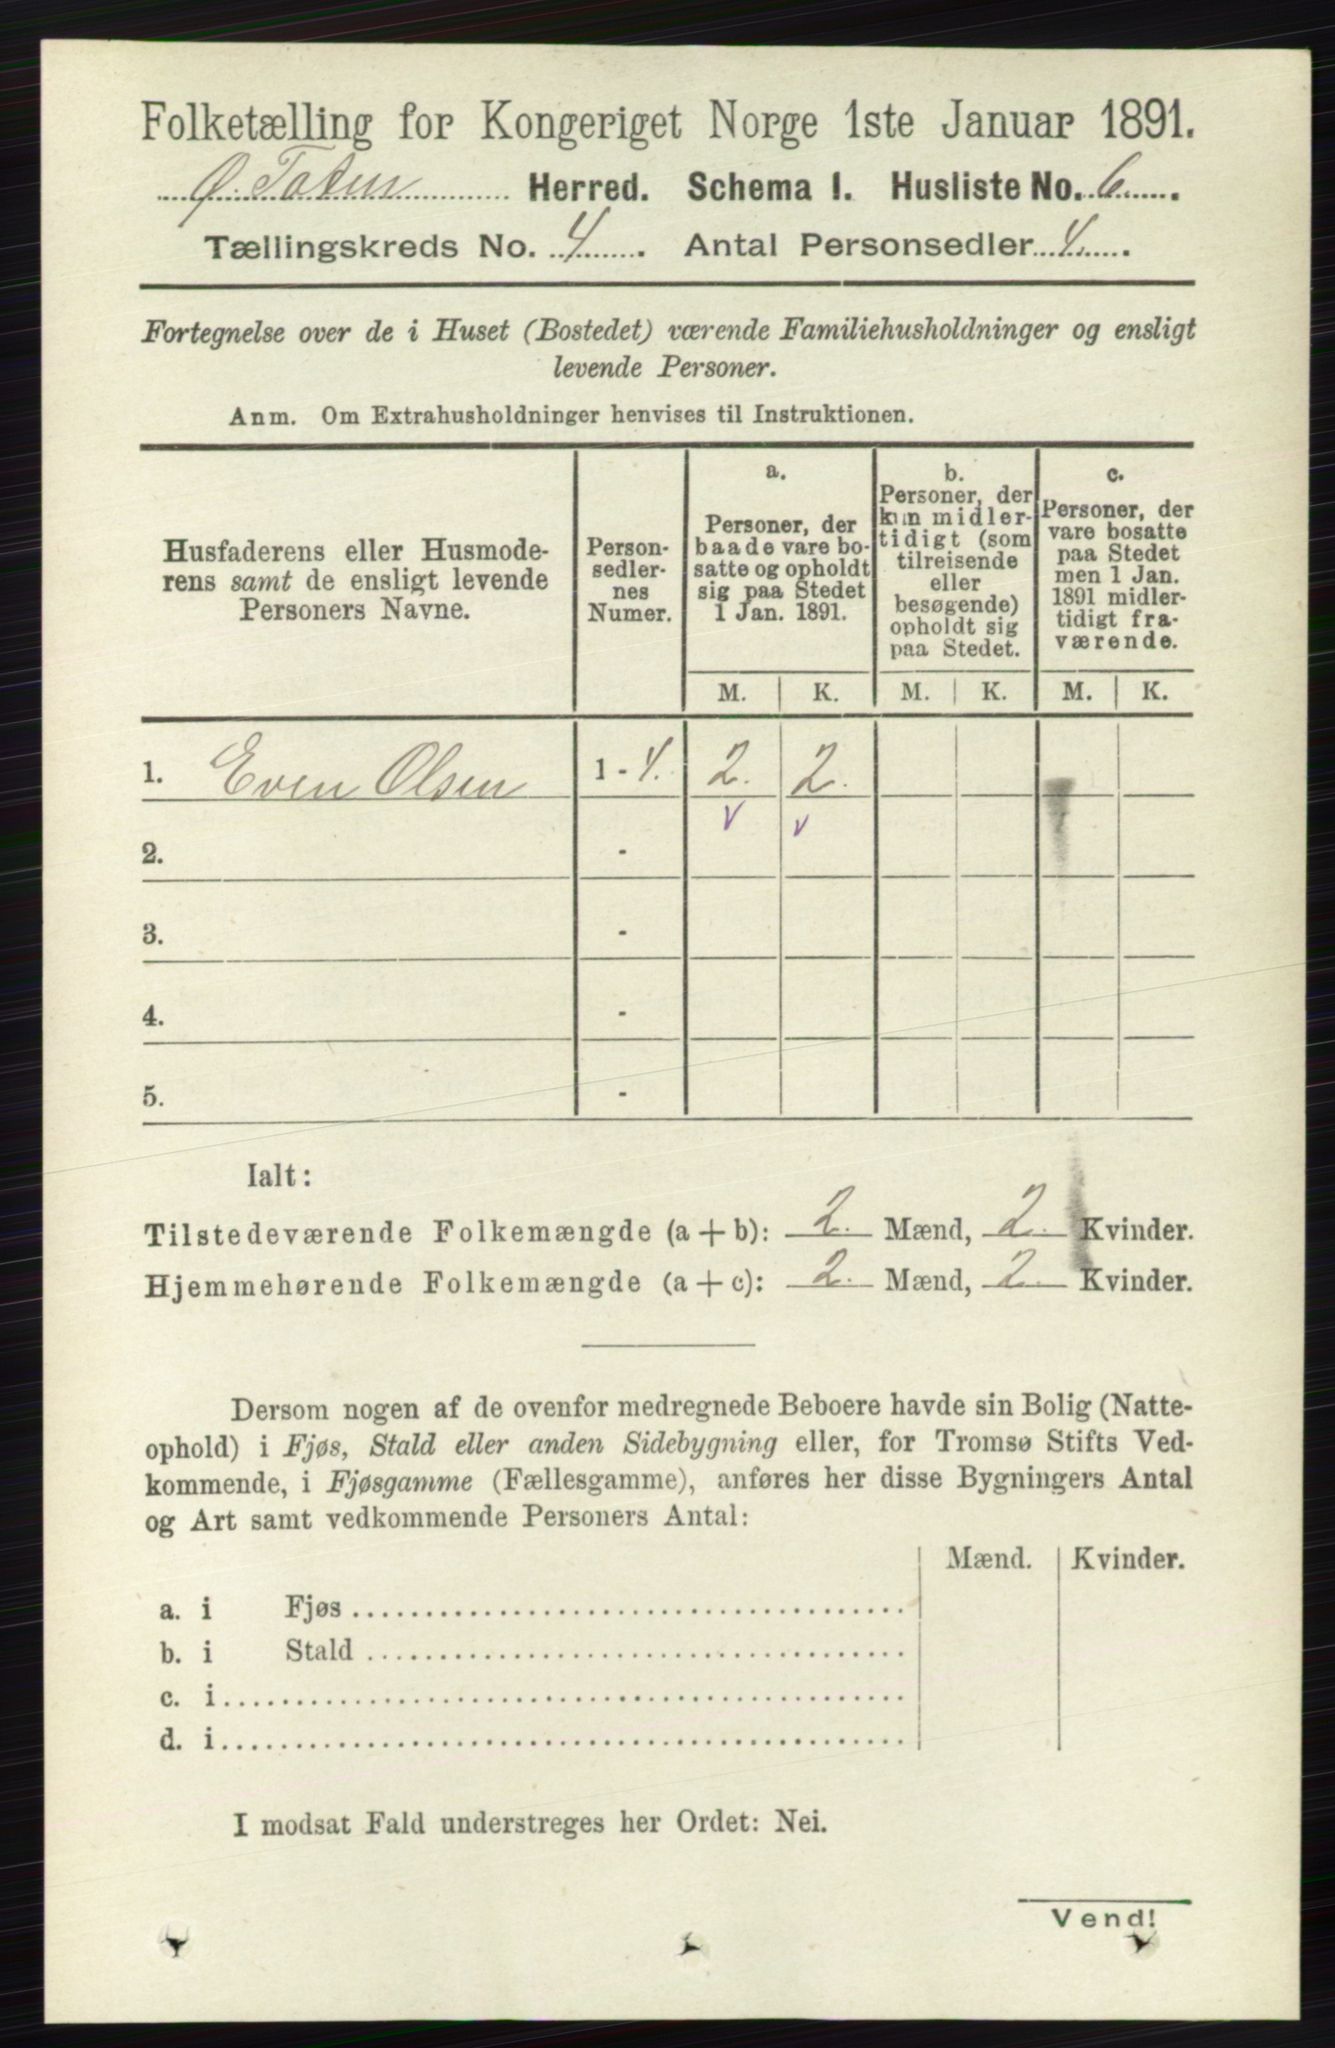 Folketælling for Kongeriget Norge 1ste Januar 1891.
Ø. Toten Herred. Schema I. Husliste No. 6.
Tællingskreds No. 4. Antal Personsedler 4.
Fortegnelse over de i Huset (Bostedet) værende Familiehusholdninger og ensligt
levende Personer.
Anm. Om Extrahusholdninger henvises til Instruktionen.
Husfaderens eller Husmode-
rens samt de ensligt levende
Personers Navne.
Person-
sedler-
nes
Numer.
a.
Personer, der
baade vare bo-
satte og opholdt
sig paa Stedet
1 Jan. 1891.
b.
Personer, der
kun midler-
tidigt (som
tilreisende
eller
besøgende)
opholdt sig
paa Stedet.
c.
Personer, der
vare bosatte
paa Stedet
men 1 Jan.
1891 midler-
tidigt fra-
værende.
M. K. M. K. M. K.
1. Even Olsen 1 - 4. 2. 2.
v v
2. -
3. -
4. -
5. -
Ialt:
Tilstedeværende Folkemængde (a + b): 2. Mænd, 2. Kvinder.
Hjemmehørende Folkemængde (a + c): 2. Mænd, 2. Kvinder.
Dersom nogen af de ovenfor medregnede Beboere havde sin Bolig (Natte-
ophold) i Fjøs, Stald eller anden Sidebygning eller, for Tromsø Stifts Ved-
kommende, i Fjøsgamme (Fællesgamme), anføres her disse Bygningers Antal
og Art samt vedkommende Personers Antal:
Mænd. Kvinder.
a. i Fjøs
b. i Stald
c. i
d. i
I modsat Fald understreges her Ordet: Nei.
Vend!